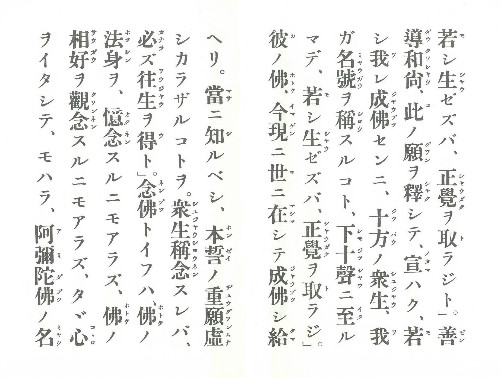 若シ生ゼズバ、正覺ヲ取ラジト」善
導和尙、此ノ願ヲ釋シテ、宣ハク、若
シ我レ成佛センニ、十方ノ衆生、我
ガ名號ヲ稱スルコト、下十聲ニ至ル
マデ、若シ生ゼズバ、正覺ヲ取ラジ」。
彼ノ佛、今現ニ世ニ在シテ成佛シ給
ヘリ。當ニ知ルベシ、本誓ノ重願虛
シカラザルコトヲ。衆生稱念スレバ、
必ズ往生ヲ得ト」念佛トイフハ、佛ノ
法身ヲ、憶念スルニモアラズ、佛ノ
相好ヲ觀念スルニモアラズ、タヾ心
ヲイタシテ、モハラ、阿彌陀佛ノ名